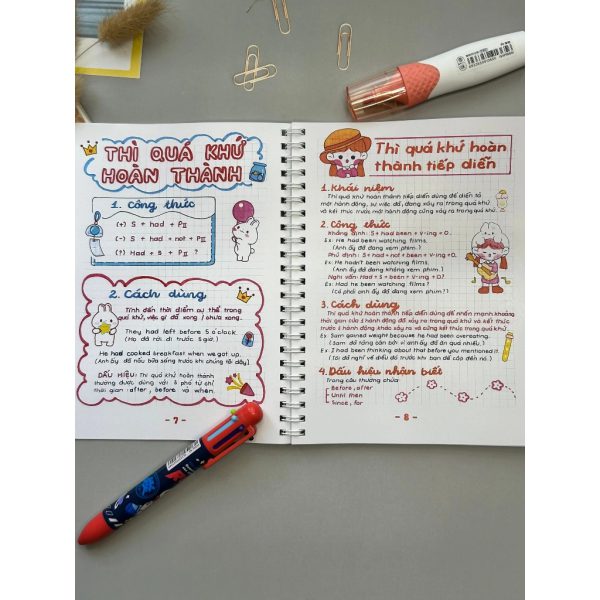 THÌ QUÁ KHỨ
HOÀN THÀNH
1. Công thức
(+) S + had + PII
(-) S + had + not + PII
(?) Had + S + PII ?
2. Cách dùng
Tính đến thời điểm cụ thể trong
quá khứ, việc gì đã xong / chưa xong.
They had left before 5 o'clock.
(Họ đã rời đi trước 5 giờ.)
He had cooked breakfast when we got up.
(Anh ấy đã nấu bữa sáng trước khi chúng tôi dậy)
DẤU HIỆU: Thì quá khứ hoàn thành
thường được dùng với 3 phó từ chỉ
thời gian: after, before và when.
- 7 -
Thì quá khứ hoàn
thành tiếp diễn
1. Khái niệm
Thì quá khứ hoàn thành tiếp diễn dùng để diễn tả
một hành động, sự việc đã, đang xảy ra trong quá khứ
và kết thúc trước một hành động cũng xảy ra trong quá khứ.
2. Công thức
Khẳng định: S + had + been + V-ing + O.
Ex: He had been watching films.
(Anh ấy đã đang xem phim.)
Phủ định: S + had + not + been + V-ing + O.
Ex: He hadn't been watching films.
(Anh ấy đã đang không xem phim.)
Nghi vấn: Had + S + been + V-ing + O?
Ex: Had he been watching films?
(Có phải anh ấy đã đang xem phim?)
3. Cách dùng
Thì quá khứ hoàn thành tiếp diễn dùng để nhấn mạnh khoảng
thời gian của 1 hành động đã xảy ra trong quá khứ và kết thúc
trước 1 hành động khác xảy ra và cũng kết thúc trong quá khứ.
Ex: Sam gained weight because he had been overeating.
(Sam đã tăng cân bởi vì anh ấy đã ăn quá nhiều.)
Ex: I had been thinking about that before you mentioned it.
(Tôi đã nghĩ về điều đó trước khi bạn đề cập đến nó.)
4. Dấu hiệu nhận biết
Trong câu thường chứa:
Before, after
Until then
Since, for
- 8 -